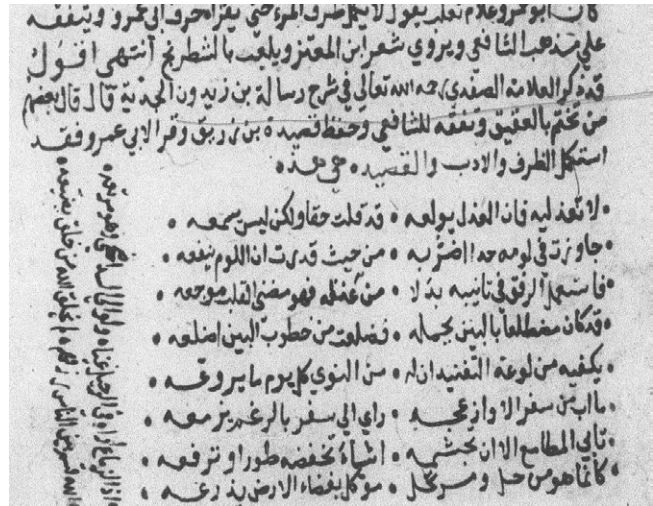 كان ابو عمرو غلام ثعلب يقول لا يكمل ظرف المرء حتي يقرا حرف ابي عمرو ويتفقه
علي مذهب الشافعي ويروي شعر ابن المعتز ويلعب بالشطرنج انتهي اقول
قد ذكر العلامه الصفدي رحمه الله تعالي في شرح رسالة بن زيدون الجدية قال قال بعضهم
من تختم بالعقيق وتفقه للشافعي وحفظ قصيدة بن زريق وقرا لابي عمرو فقد
استكمل الظرف والادب والقصيده هي هذه
لا تعذليه فان العذل يولعه • قد قلت حقا ولكن ليس يسمعه •
جاوزت في لومه حدا اضر به • من حيث قدرت ان اللوم ينفعه •
فاستعملي الرفق في تانيبه بدلا • من عنفه فهو مضني القلب موجعه •
قد كان مضطلعا بالبين يحمله • فضلعت من خطوب البين اضلعه •
يكفيه من لوعة التفنيد ان له • من النوي كل يوم ما يروعه •
ما اب من سفر الا وازعجه • راي الي سفر بالرغم يزمعه •
تابي المطامع الا ان تجشمه • اشياء تخفضه طورا وترفعه •
كانما هو من حل ومرتحل • موكل بفضاء الارض يذرعه •
اذا الزماع اراه في الرحيل غنا • ولو الي السد اضحي وهو مزمعه •
الله قسم بين الناس رزقهم • لم يخلق الله من خلق يضيعه •